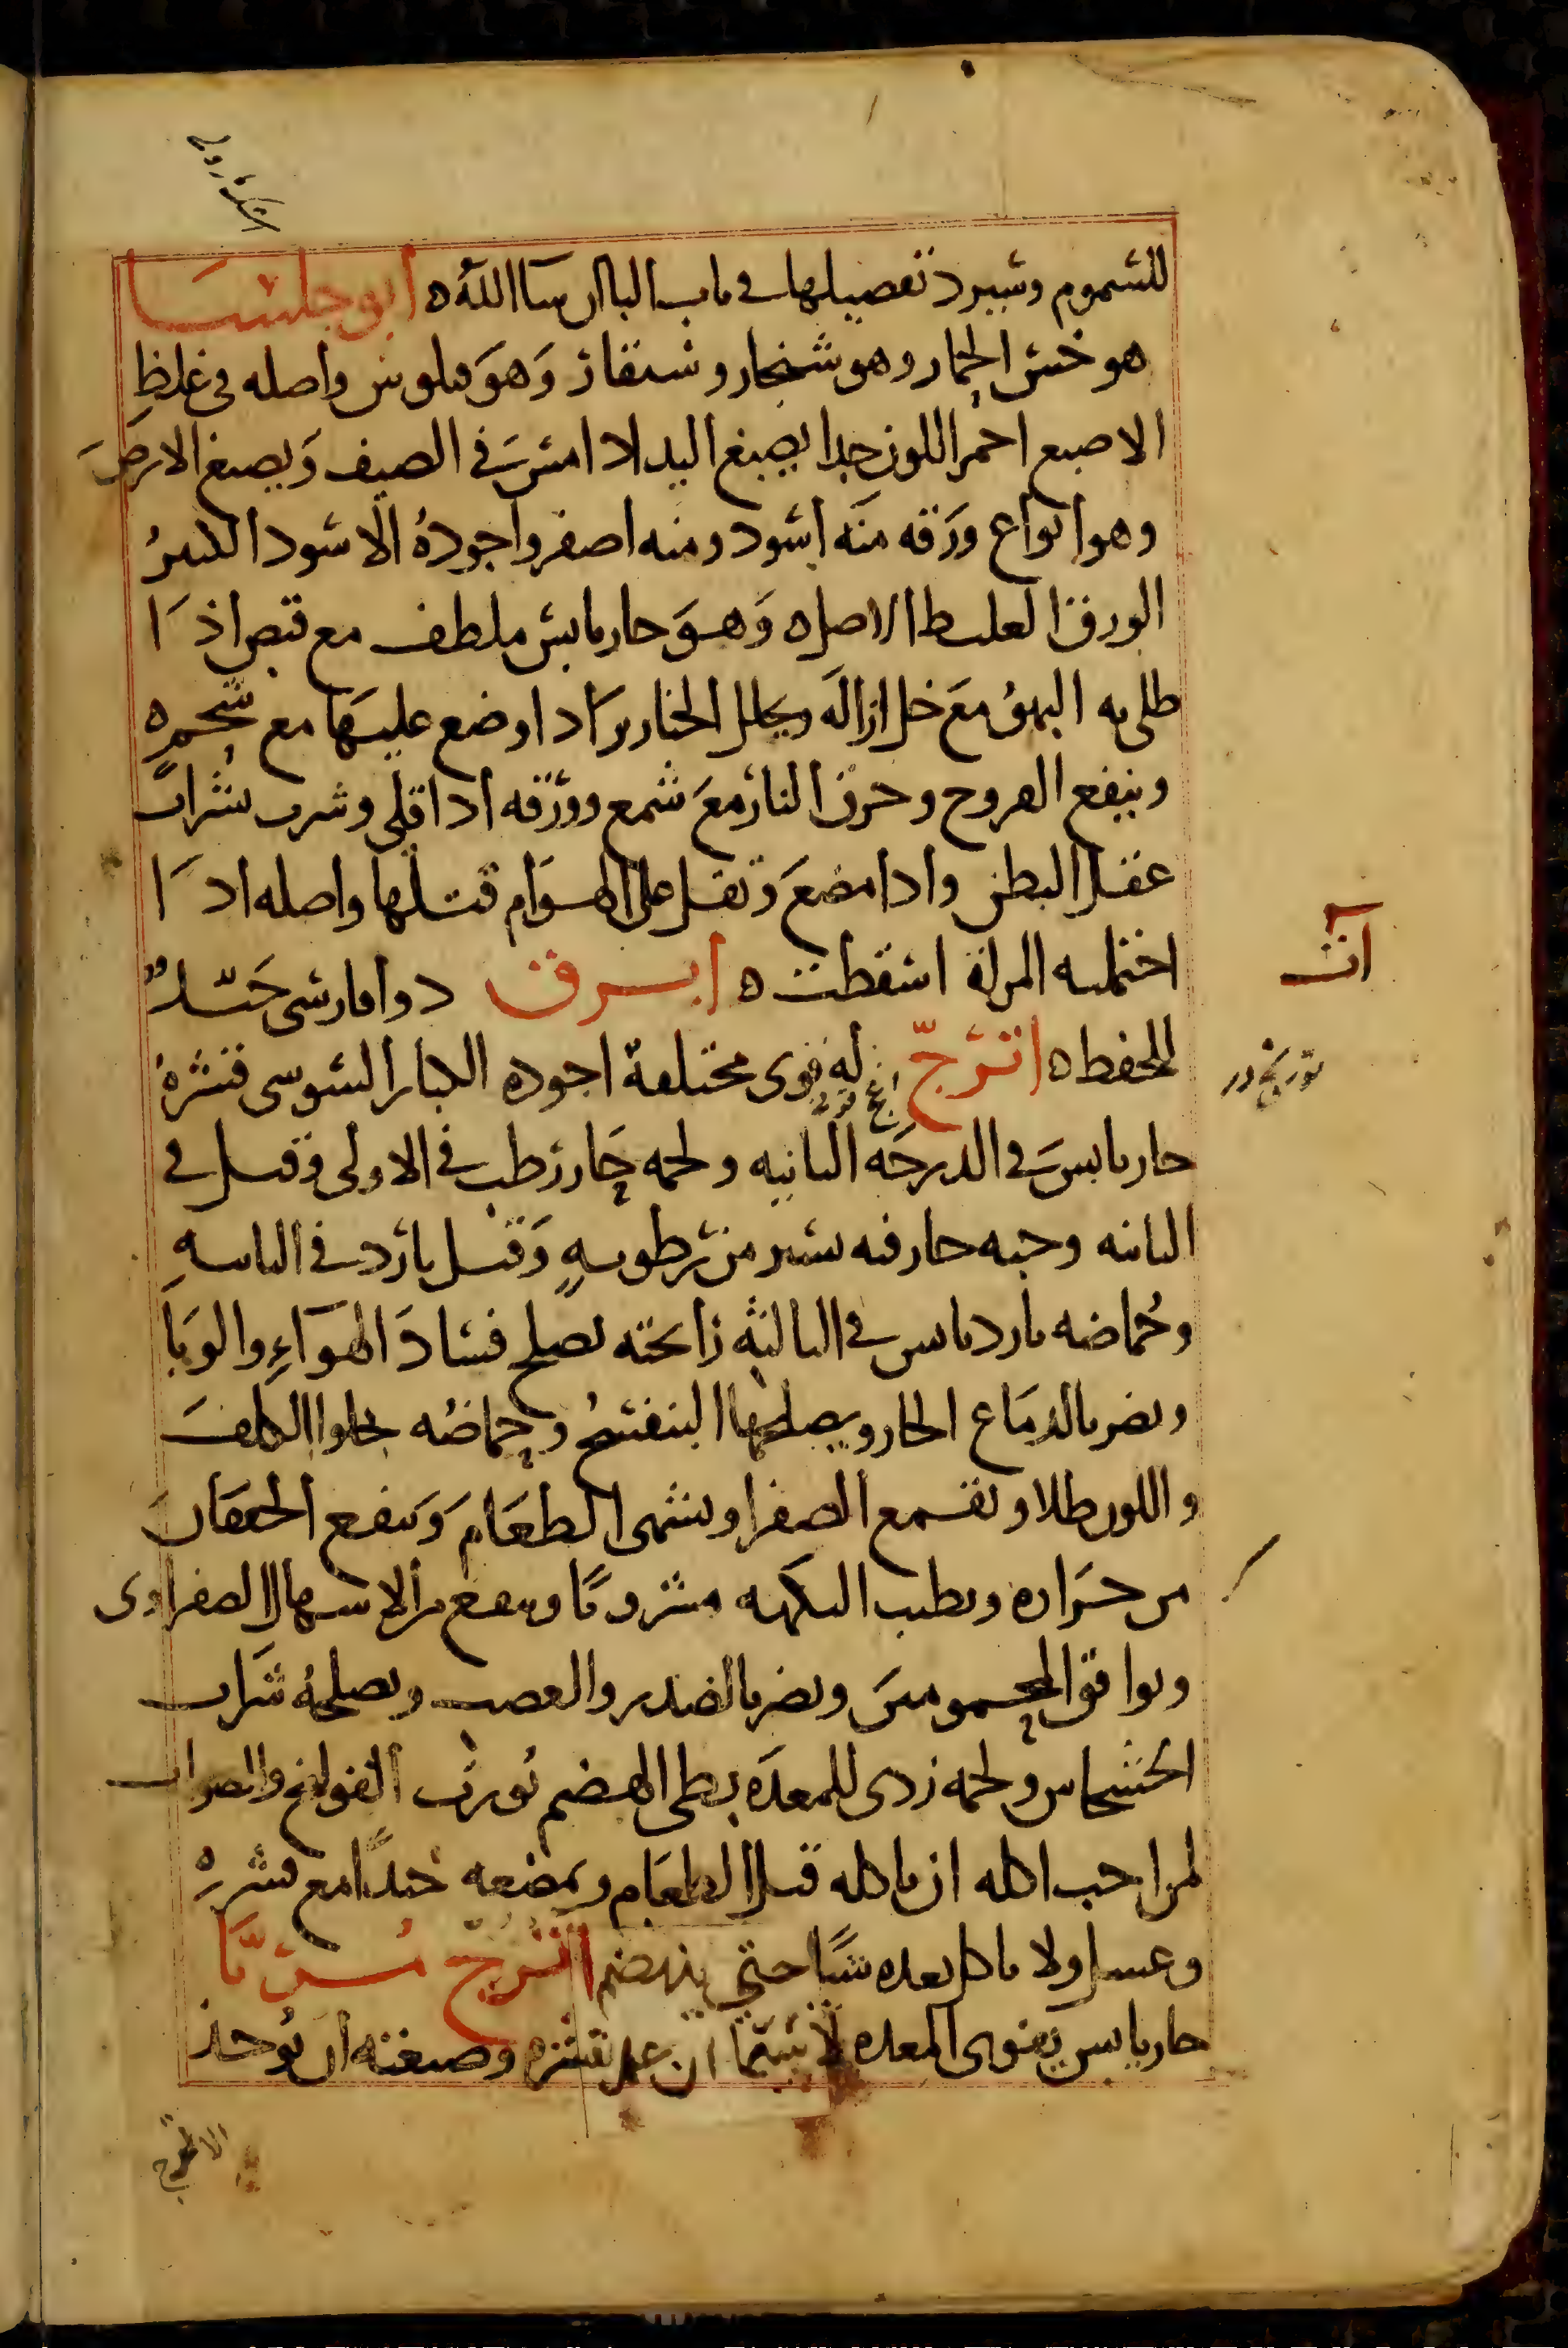 للسموم وسيرد تفصيلها في باب البا ان شا الله ه ابو جلسا
هو خس الحمار وهو شنجار وشنقار وَهوَ فيلوس واصله في غلظِ
الاصبع احمر اللون جدا يصبغ اليد اذا امترسَ في الصيف وَيصبغ الارضَ
وهو انواع ورَقه منَه اسود ومنه اصفر واجودهُ الاسود الكبيرُ
الورق الغليظ الاصل ه وَهوَ حار يابس ملطف مع قبض اذَا
طلي به البهقُ معَ خل ازالَه ويحلل الخنازيرَ اذا وضع عليهَا مع شحمٍ ه
وينفع القروح وحرق النار معَ شمع وورَقه اذا قلي وشرب بشراب
عقل البطن واذا مضغَ وتفل على الهوَام قتلها واصله اذَا
احتملته المراة اسقطت ه ابرق دوا فارسي جَيّدٌ
للحفظ ه اترجّ له قوى مختلفة اجوده الكبار السوسي قشرهُ
حار يابسَ في الدرجَه الثانيه ولحمه حَار رَطب في الاولى وقيل في
الثانيه وحبه حار فيه يسير من رطوبهٍ وَقيل بارد في الثانيهِ
وحُماضه بارد يابس في الثالثه رائحته تصلح فسادَ الهوَاءِ والوبَا
وتضر بالدمَاغ الحار ويصلحها البنفسجُ وحماضُه يجلوا الكلفَ
واللون طلا ويقمع الصفرا ويشهي الطعَام وَينفع الخفقانَ
من حرَاره ويطيب النكهه مشروبًا وينفع من الاسهال الصفراوى
ويوافق المحمومينَ ويضر بالصدر والعصب ويصلحهُ شراب
الخشخاس ولحمه ردى للمعدَه بطى الهضم يُورث القولنج والصواب
لمن احب اكله ان ياكله قبل الطعَام ويمضغه جيدًا مع قشرهِ
وعسل ولا ياكل بعده شيًا حتي ينهضم اترجّ مُربَّا
حار يابس يقوى المعده لا سيّما ان عمل بقشره وصنعته ان يُوخذ
آت
الاترج